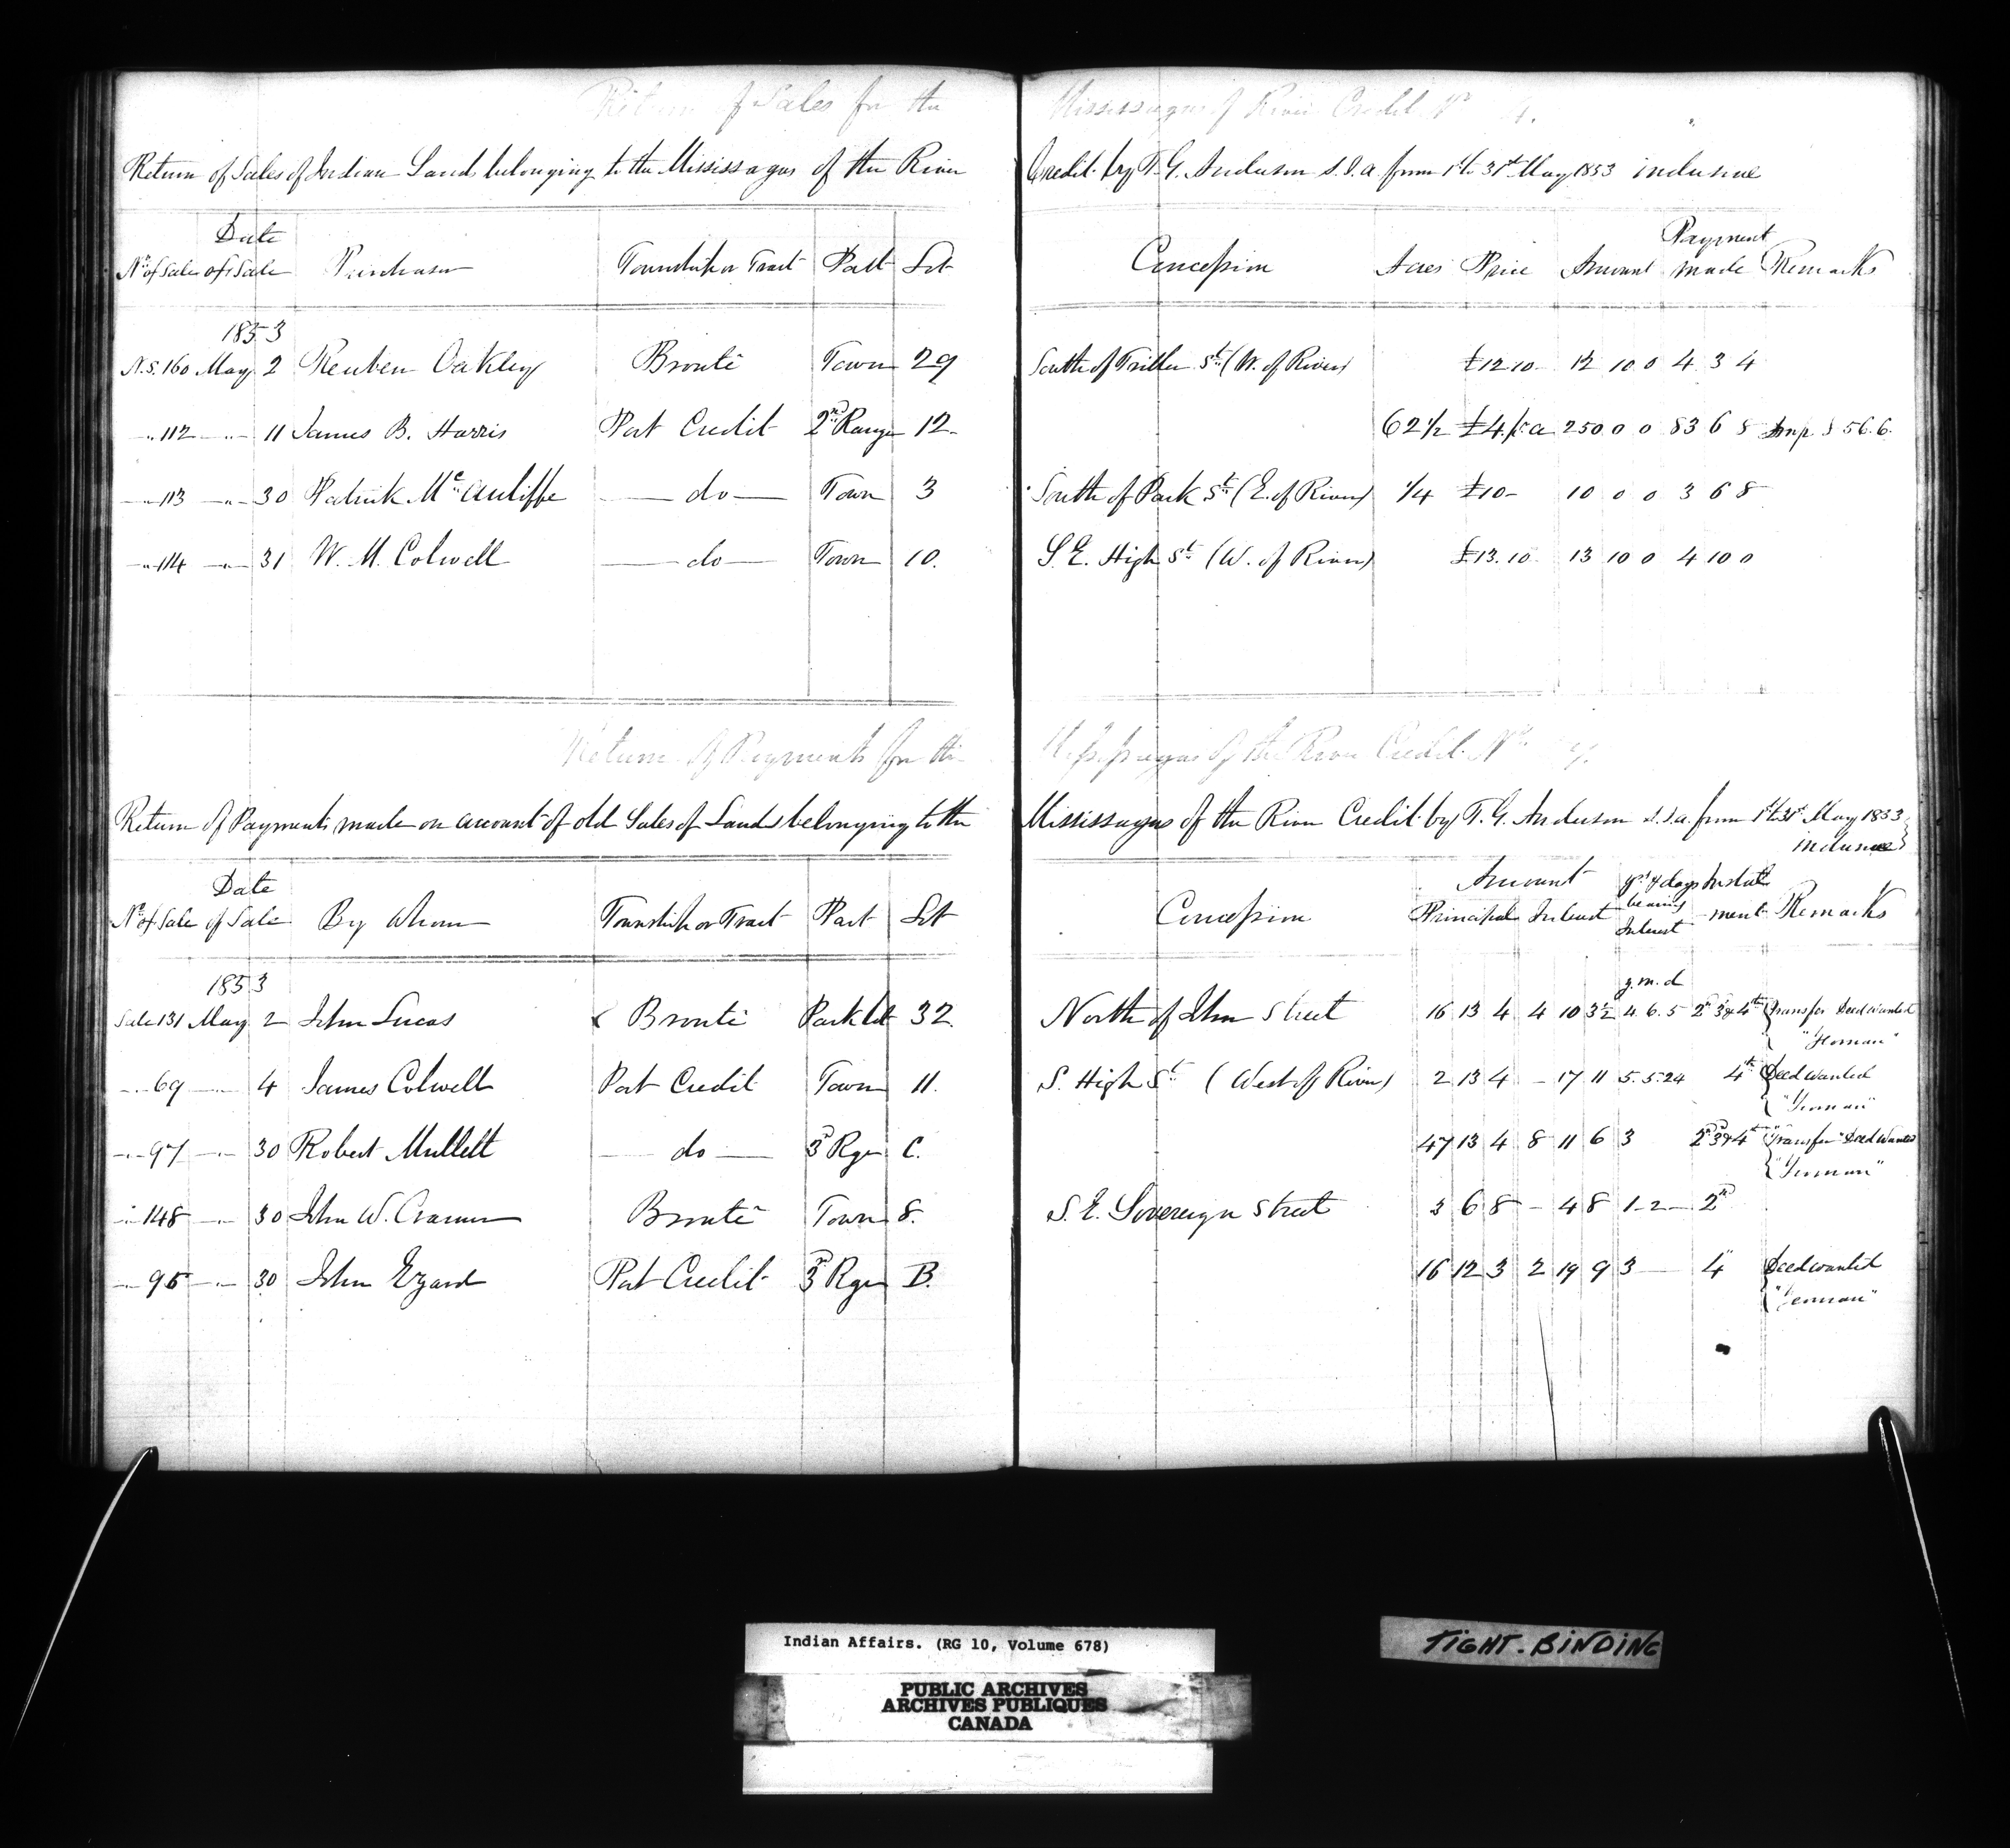 Return of Sales for the Mississagas of River Credit No 4.
Return of Sales of Indian Land belonging to the Mississagas of the River Credit by T. G. Anderson S.I.A. from 1st to 31st May 1853 inclusive
No of Sale Date of Sale Purchaser Township or Tract Part Lot Concession Acres Price Amount Payment made Remarks
1853
N.S. 160 May 2 Reuben Oakley Bronté Town 29 South of Triller St (W. of River) £12 10 12 10 0 4 3 4
" 112 " 11 James B. Harris Port Credit 2nd Range 12 62 1/2 £4 pr a 250 0 0 83 6 8 Imp. § 56.6.
" 113 " 30 Patrick McAuliffe do Town 3 South of Park St (E. of River) 1/4 £10 10 0 0 3 6 8
" 114 " 31 W. M. Colwell do Town 10. S.E. High St (W. of River) £13.10 13 10 0 4 10 0
Return of Payments for the Mississagas of the River Credit No 4.
Return of Payments made on account of old Sales of Lands belonging to the Mississagas of the River Credit by T. G. Anderson S.I.A. from 1st to 31st May 1853
inclusive
No of Sale Date of Sale By Whom Township or Tract Part Lot Concession Amount Principal Interest yrs & days bearing Interest Instalment Remarks
1853 y. m. d
Sale 131 May 2 John Lucas x Bronté Park lot 32 North of John Street 16 13 4 4 10 3 1/2 4. 6. 5 2nd 3d & 4th Transfer Deed Wanted
" 69 " 4 James Colwell Port Credit Town 11. S. High St (West of River) 2 13 4 – 17 11 5. 5. 24 4th Deed Wanted
" 97 " 30 Robert Mullett do 3d Rge C. 47 13 4 8 11 6 3 2d 3d & 4th Transfer Deed Wanted
" 148 " 30 John W. Cramer Bronté Town 8. S.E. Sovereign Street 3 6 8 – 4 8 1–2– 2nd
" 95 " 30 John Ezard Port Credit 3d Rge B. 16 12 3 2 19 9 3 4 Deed wanted
Indian Affairs. (RG 10, Volume 678)
PUBLIC ARCHIVES
ARCHIVES PUBLIQUES
CANADA
TIGHT-BINDING